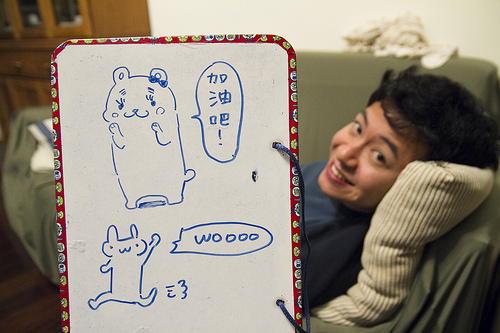 加
油
吧
!
WOOOO